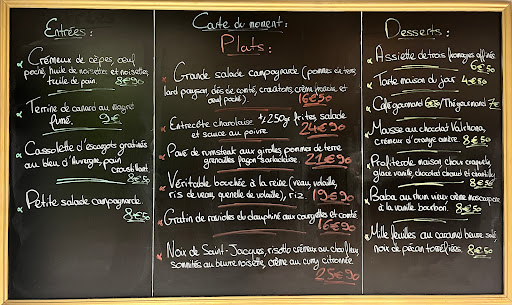 Entrées :
Crémeux de cèpes, œuf
poché, huile de noisettes et noisettes,
tuile de pain. 8€90
Terrine de canard au magret
fumé. 9€
Cassolette d'escargots gratinés
au bleu d'Auvergne, pain
croustillant. 8€50
Petite salade campagnarde.
8€50
Carte du moment :
Plats :
Grande salade campagnarde (pommes de terre,
lard paysan, dés de comté, croûtons, crème fraîche, et
œuf poché). 16€50
Entrecôte charolaise +/- 250gr frites, salade
et sauce au poivre. 24€90
Pavé de rumsteak aux girolles pommes de terre
grenailles façon sarladaise. 21€90
Véritable bouchée à la reine (veau, volaille,
ris de veau, quenelle de volaille), riz. 19€90
Gratin de ravioles du dauphiné aux courgettes et comté.
16€90
Noix de Saint-Jacques, risotto crémeux au chou fleur,
sommités au beurre noisette, crème au curry citronnée.
25€90
Desserts :
Assiette de trois fromages affinés.
6€50
Tarte maison du jour 4€50
Café gourmand /Thé gourmand 7€
Mousse au chocolat Valrhona,
crémeux d'orange ambré. 8€50
Profiterole maison choux craquelin,
glace vanille, chocolat chaud et chantilly.
8€50
Baba au rhum vieux crème mascarpone
à la vanille bourbon. 8€50
Mille feuilles au caramel beurre salé,
noix de pécan torréfiées. 8€50